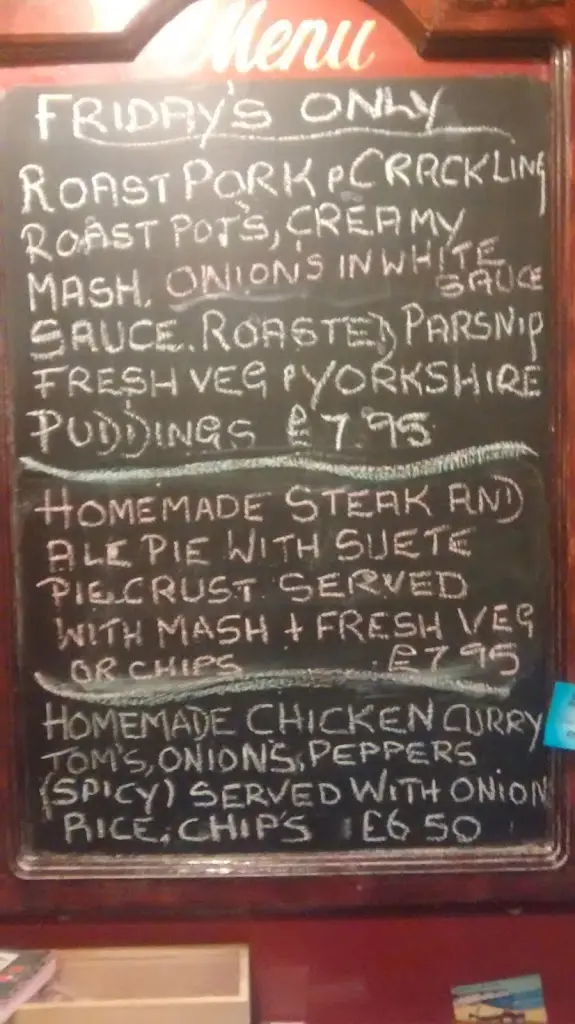 Menu
FRIDAY'S ONLY
ROAST PORK & CRACKLING
ROAST POT'S, CREAMY
MASH. ONION'S IN WHITE
SAUCE
SAUCE. ROASTED PARSNIP
FRESH VEG & YORKSHIRE
PUDDINGS £7.95
HOMEMADE STEAK AND
ALE PIE WITH SUETE
PIE.CRUST SERVED
WITH MASH + FRESH VEG
OR CHIPS £7.95
HOMEMADE CHICKEN CURRY
TOM'S, ONION'S, PEPPERS
(SPICY) SERVED WITH ONION
RICE, CHIP'S £6 50